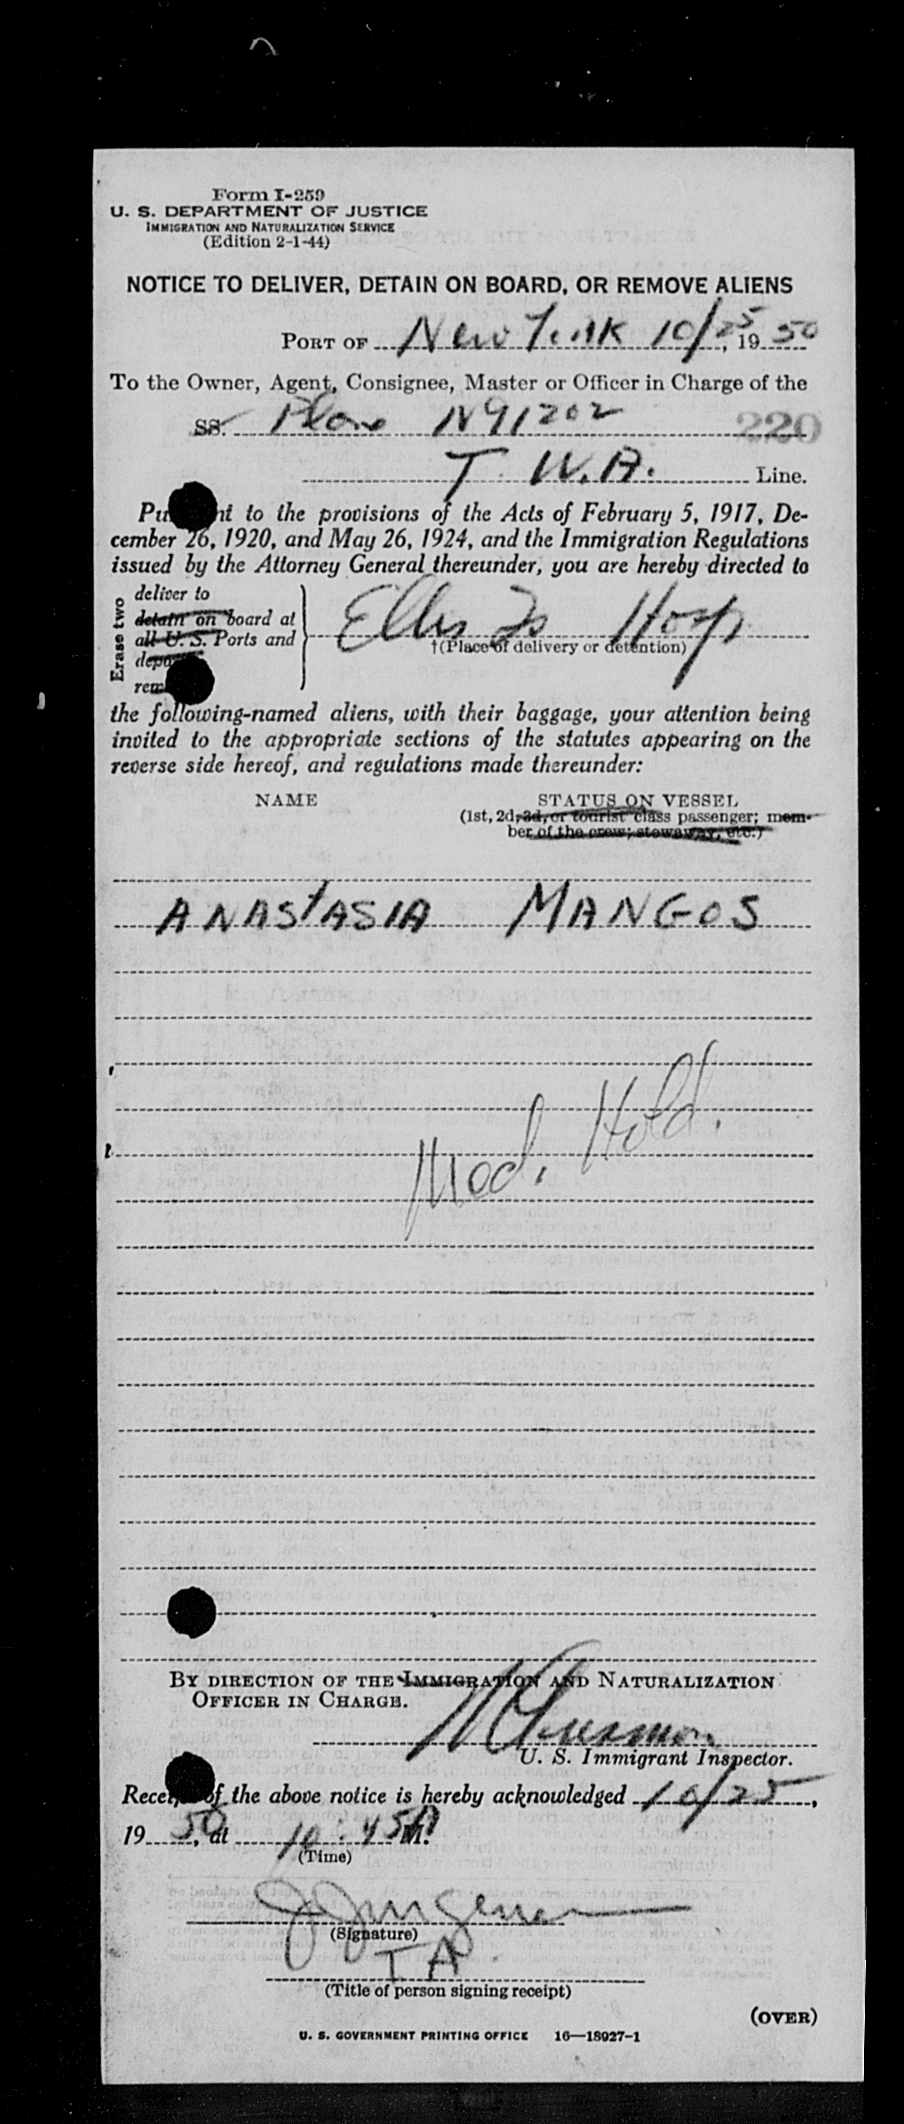 Form I-259
U. S. DEPARTMENT OF JUSTICE
IMMIGRATION AND NATURALIZATION SERVICE
(Edition 2-1-44)
NOTICE TO DELIVER, DETAIN ON BOARD, OR REMOVE ALIENS
PORT OF New York 10/25, 1950
To the Owner, Agent, Consignee, Master or Officer in Charge of the
SS. Plane N91202
220
T. W. A. Line.
Pu nt to the provisions of the Acts of February 5, 1917, De-
cember 26, 1920, and May 26, 1924, and the Immigration Regulations
issued by the Attorney General thereunder, you are hereby directed to
Erase two
deliver to
detain on board at
all U. S. Ports and
depo
rem
Ellis Is Hosp
†(Place of delivery or detention)
the following-named aliens, with their baggage, your attention being
invited to the appropriate sections of the statutes appearing on the
reverse side hereof, and regulations made thereunder:
NAME STATUS ON VESSEL
(1st, 2d, 3d, or tourist class passenger; mem-
ber of the crew; stowaway, etc.)
ANASTASIA MANGOS
Med. Hold.
BY DIRECTION OF THE IMMIGRATION AND NATURALIZATION
OFFICER IN CHARGE.
U. S. Immigrant Inspector.
Receipt of the above notice is hereby acknowledged 10/25,
1950, at 10:45A M.
(Time)
(Signature)
T A
(Title of person signing receipt)
(OVER)
U. S. GOVERNMENT PRINTING OFFICE 16—18027-1